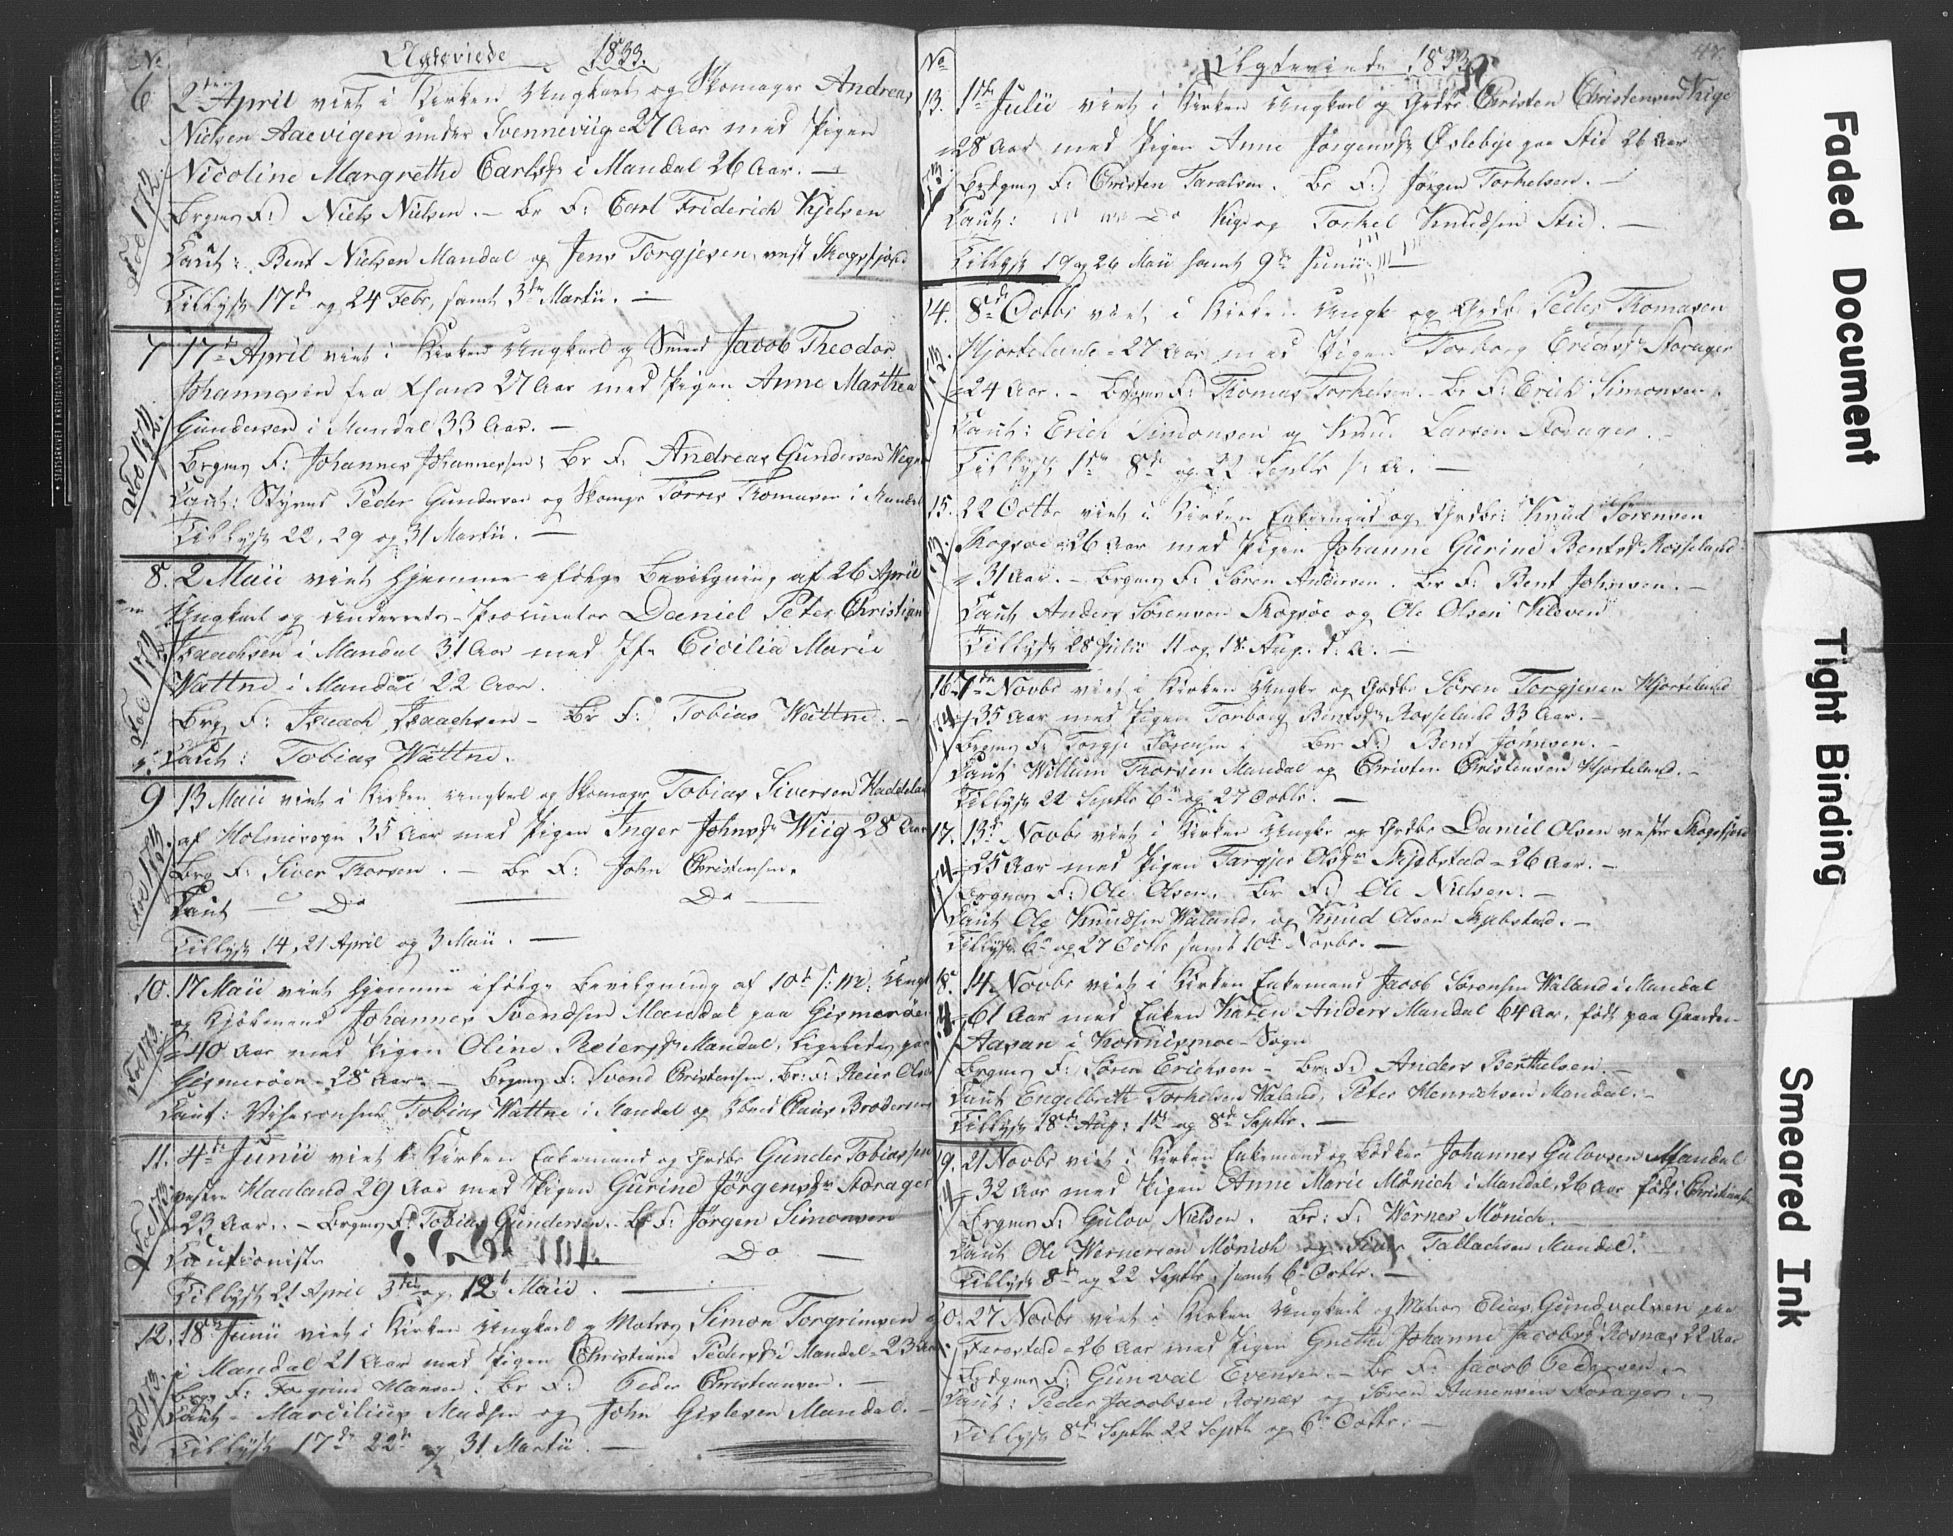 No
Ægteviede 1833.
6. 2den April viet i Kirken Ungkarl og Skomager Andreas
Nielsen Aaevigen under Svenneviig 27 Aar med Pigen
Nicoline Margrethe Carlsdr i Mandal 26 Aar. —
Brgms F: Niels Nielsen. — Br F: Carl Friderich Kjelsen
Caut: Bent Nielsen Mandal og Jens Torgjesen vest Skogsfjord
Tillyst 17de og 24 Febr, samt 3de Martii. —
Fol 172.
7 17de April viet i Kirken Ungkarl og Smed Jacob Theodor
Johannesen fra 27 Aar med Pigen Anne Marthea
Gundersen i Mandal 33 Aar. —
Brgms F: Johannes Johannessen; Br F: Andreas Gundersen
Caut: Styrmd Peder Gundersen og Skomgr Torres Thomasen i Mandal
Tillyst 22, 29 og 31 Martii. —
Fol 172.
8. 2 Maii viet hjemme ifølge Bevilgning af 26 April
Ungkarl og Underrets-Procurator Daniel Peter Christian
Isaachsen i Mandal 31 Aar med Jfr Cicilia Marie
Wattne i Mandal 22 Aar.
Brg F: Isaach Isaachsen — Br F: Tobias Wattne. —
Caut: Tobias Wattne.
Fol 172.
9 13 Maii viet i Kirken Ungkarl og Skomagr Tobias Siversen
af Holmesogn 35 Aar med Pigen Inger Johnsdr Wiig 28 Aar
Brg F: Siver Thorsen. — Br F: John Christensen.
Caut — Do — Do —
Tillyst 14, 21 April og 3 Maii. —
Fol 173.
10. 17 Maii viet hjemme ifølge Bevilgning af 10de s: M: Ungk
og Kjøbmand Johannes Svendsen Mandal paa Gismerøen
40 Aar med Pigen Oline Reiersdr Mandal, ligeledes paa
Gismerøen 28 Aar. — Brgms F: Svend Christensen. Br: F: Reier Olsen
Caut: Tobias Wattne i Mandal og Claus Brodersen
Fol 173.
11. 4de Junii viet i Kirken Enkemand og Grdbr Gunder Tobiassen
vestre Haaland 29 Aar med Pigen Gurine Jørgensdr Storager
23 Aar. — Brgms F: Tobias Gundersen. Br F: Jørgen Simonsen
Cautionister Do Do —
Tillyst 21 April 3die og 12te Maii. —
Fol 173.
12. 18de Junii viet i Kirken Ungkarl og Matros Simon Torgrimsen
i Mandal 21 Aar med Pigen Christiane Pedersdr i Mandal 23 Aar
Brgs F: Torgrim Hansen. Br F: Peder Christiansen. —
Caut — Marcilius Madsen og John Gislesen Mandal. —
Tillyst 17de 22de og 31 Martii. —
Fol 173.
No
Ægteviede 1833
47.
13. 1ste Julii viet i Kirken Ungkarl og Grdbr Christen Christensen Kige
28 Aar med Pigen Anne Jørgensdr Øslebye paa Stid 26 Aar
Brdgms F: Christen Taralsen. Br F: Jørgen Torkelsen. —
Caut: Do Kige og Torkel Knudsen Stid. —
Tillyst 19 og 26 Maii samt 9de Junii
14. 8de Octbr viet i Kirken Ungk og Grdbr Peder Thomasen
Hjorteland 27 Aar med Pigen Torborg Erichsdr Storager
24 Aar. — Brgms F: Thomas Torkelsen. — Br F: Erich Simonsen
Caut: Erich Simonsen og Knud Larsen Storager. —
Tillyst 1ste 8de og 22 Septbr s: A: —
15. 22 Octbr viet i Kirken Enkemand og Grdbr: Knud Sørensen
Skogsøe 26 Aar med Pigen Johanne Gurine Bentsdr Rosseland
31 Aar. — Brgms F: Søren Andersen. Br F: Bent Johnsen. —
Caut Anders Sørensen Skogsøe og Ole Olsen Kleven
Tillyst 28 Julii 11 og 18 Aug. d: A: —
16. 7de Novbr viet i Kirken Ungkr og Grdbr Søren Torgjesen Hjorteland
35 Aar med Pigen Torborg Bentsdr Rosseland 33 Aar. —
Brgms F: Torgje Sørensen Br F: Bent Johnsen. —
Caut Willum Thorsen Mandal og Christen Christensen Hjorteland. —
Tillyst 22 Septbr 6te og 27 Octbr. —
17. 13de Novbr viet i Kirken Ungkr og Grdbr Daniel Olsen vestre Skogsfjord
25 Aar med Pigen Targjer Olsdr Skjebstad 26 Aar. —
Brgms F: Ole Olsen. Br F: Ole Nielsen. —
Caut Ole Knudsen Waland, og Knud Olsen Skjebstad. —
Tillyst 6te og 27 Octbr samt 10de Novbr. —
18. 14 Novbr viet i Kirken Enkemand Jacob Sørensen Waland i Mandal
61 Aar med Enken Karen Anders Mandal 64 Aar, født paa Gaarden
Aasan i Konnismoe Sogn
Brgms F: Søren Erichsen — Br: F: Anders Berthelsen. —
Caut Engelbreth Torkelsen Waland, Peter Henrichsen Mandal. —
Tillyst 18de Aug: 1ste og 8de Septbr. —
19. 21 Novbr viet i Kirken Enkemand og Bødker Johannes Gulovsen Mandal
32 Aar med Pigen Anne Marie Mönich i Mandal, 26 Aar født i Christians
Brgms F: Gulov Nielsen. Br: F: Werner Mönich.
Caut Ole Wernersen Mönich og Siver Tallachsen Mandal. —
Tillyst 8de og 22 Septbr, samt 6te Octbr. —
20. 27 Novbr viet i Kirken Ungkarl og Matros Elias Gundvalsen paa
Farestad 26 Aar med Pigen Grethe Johanne Jacobsdr Rosnæs 22 Aar
Brdgms F: Gunval Evensen. — Br F: Jacob Pedersen. —
Caut: Peder Jacobsen Rosnæs og Søren Storager. —
Tillyst 8de Septbr 22 Septbr og 6te Octbr. —
Faded Document
Tight Binding
Smeared Ink